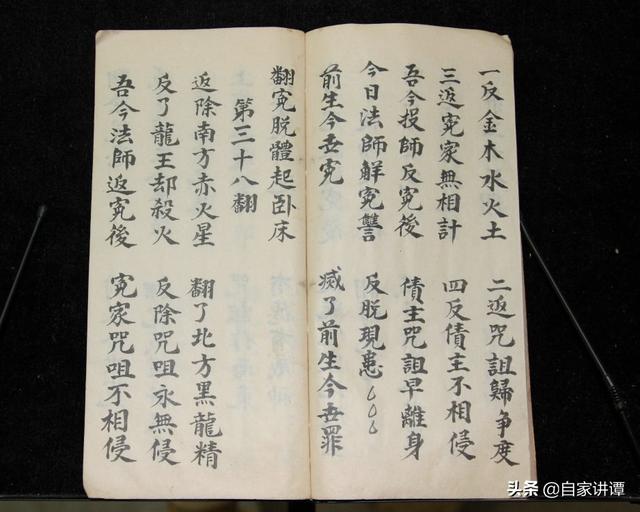 一反金木水火土 二返咒詛歸爭度
三返寃家無相計 四反債主不相侵
吾今投師反寃後 債主咒詛早離身
今日法師觧寃讐 反脱現患
前生今世寃 滅了前生今世罪
翻寃脱體起卧床
第三十八翻
返除南方赤火星 翻了北方黑龍精
反了龍王却殺火 反除咒咀永無侵
吾今法師返寃後 寃家咒咀不相侵
头条 @自家讲谭